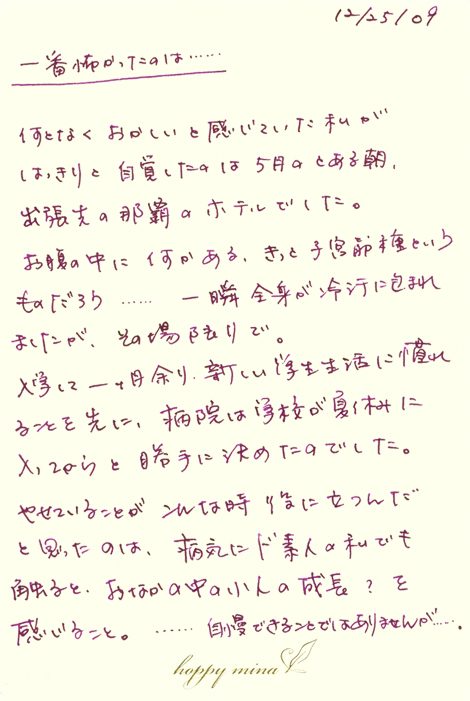 12/25/09
一番怖かったのは……
何となく おかしいと感じていた私が
はっきりと 自覚したのは 5月のとある朝、
出張先の那覇のホテルでした。
お腹の中に 何かがある、きっと子宮筋腫という
ものだろう …… 一瞬 全身が冷汗に包まれ
ましたが、その場限りで。
入学して 一ヶ月余り、新しい学生生活に慣れ
ることを先に、病院は学校が夏休みに
入ってからと 勝手に決めたのでした。
やせていることが こんな時 役に立つんだ
と思ったのは、病気にド素人の私でも
触ると、おなかの中の小人の成長?を
感じること。 …… 自慢できることではありませんが……。
hoppy mina